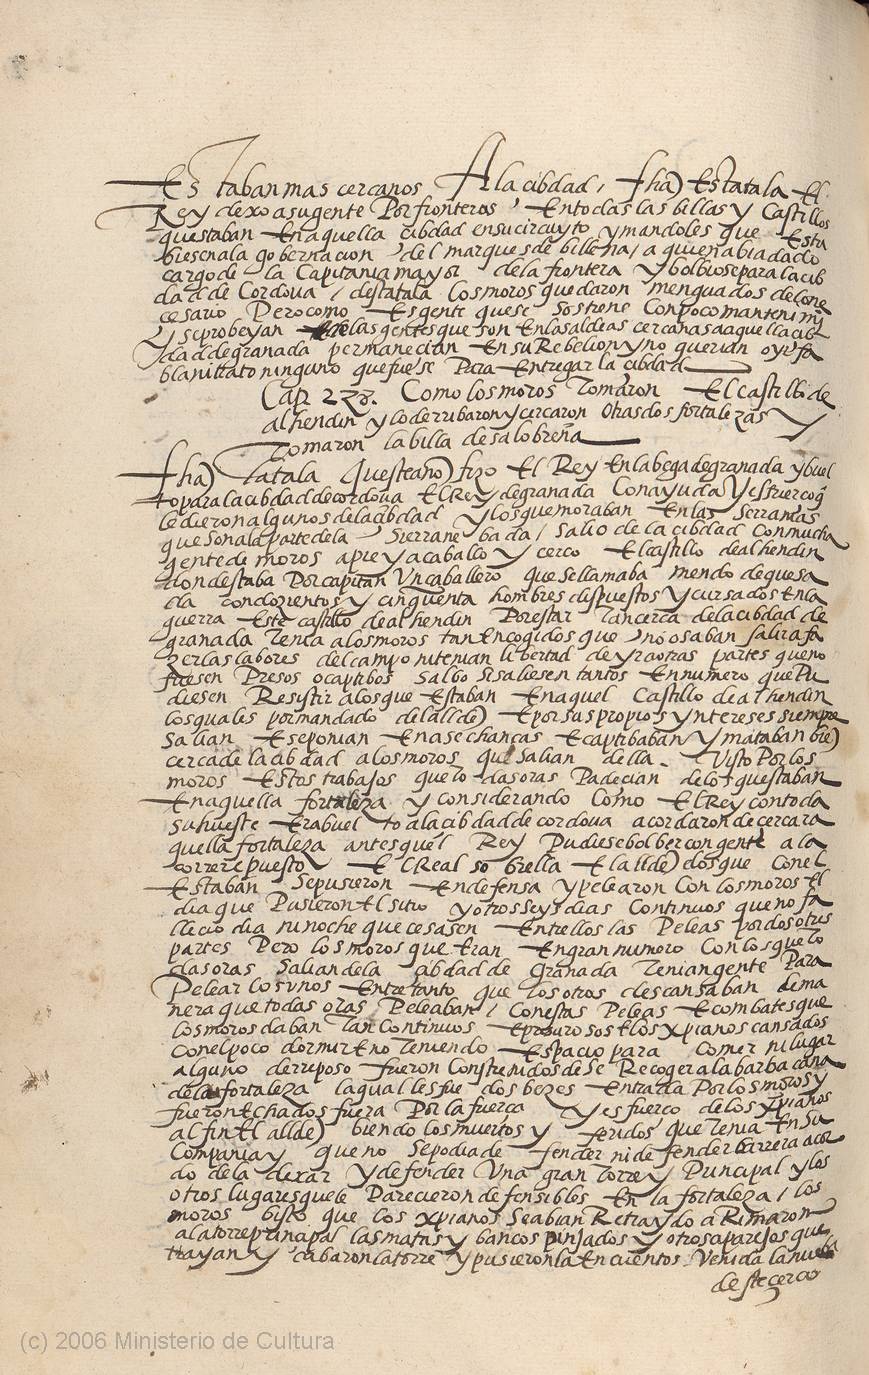 Estaban mas cercanos A la cibdad / fha) Esta tala El
Rey dexo a su gente Por fronteros , En todas las billas y Castillos
questaban En aquella cibdad en su circuyto y mandoles que Esta
biesen a la gobernacion del marques de billena / a quien abia dado
cargo de la Capitania mayor de la frontera y bolbiose para la cib
dad de Cordova / desta tala los moros quedaron menguados de lo ne
cesario Pero como Es gente que se sostiene Con poco mantenimi
y se probeyan de las gentes que son En las aldeas cercanas a aquella cib
dad de granada permanecian En su Rebelion y no querian oyr fa
bla ni trato ninguno que fuese Para Entregar la cibdad
Cap. Como los moros Tomaron El castillo de
alhendin y lo derribaron y cercaron otras dos fortalezas y
Tomaron la billa de salobreña
fha) La tala queste año) fizo El Rey En la bega de granada y buel
to para la cibdad de cordova El Rey de granada Con ayuda y esfuerço q
le dieron algunos de la cibdad y los que moraban En las Serranias
que son a la parte de la Sierra nebada / Salio de la cibdad con mucha
gente de moros a pie y a caballo y cerco El castillo de alhendin
dondestaba Por capitan Un caballero que se llamaba mendo de quesa
da con dozientos y cinquenta hombres dispuestos y cursados En la
guerra Este castillo de alhendin Por estar Tan cerca de la cibdad de
granada Tenia a los moros tan Encogidos que no osaban salir a fa
zer las labores del campo ni tenian libertad de yr a otras partes que no
fuesen Presos o captibos Salbo si saliesen tantos En numero que Pu
diesen Resistir a los que Estaban En aquel Castillo de alhendin
los quales por mandado del allde) E por sus propios yntereses siempre
Salian E se ponian En asechanças E captibaban y mataban bie)
cerca de la cibdad a los moros que salian della. Visto Por los
moros Estos trabajos que todas oras Padecian de los questaban
En aquella fortaleza y considerando Como El Rey con toda
su hueste Era buelto a la cibdad de cordova acordaron de cercar a
quella fortaleza antes quel Rey Pudiese bolber con gente a la
correr puesto El Real sobrella El allde) E los que Con el
Estaban Se pusieron En defensa y pelearon Con los moros El
dia que Pusieron El sitio y otros seys dias Continuos que no fa
llecio dia ni noche que cesasen Entrellos las Peleas por dos otres
partes Pero los moros que Eran En gran numero Con los que to
das oras Salian de la cibdad de Granada Tenian gente Para
Pelear los Unos Entre tanto que los otros descansaban de ma
nera que todas oras Peleaban / Con estas Peleas E combates que
los moros daban Tan Continuos E presurosos E los xpianos cansados
con el poco dormir E no Teniendo Espacio para Comer ni lugar
alguno de rreposo fueron Constrenidos de se Recoger a la barbacana
de la fortaleza la qual les fue dos bezes Entrada Por los moros y
fueron Echados fuera Por la fuerça y esfuerço de los xpianos
al fin El allde) biendo los muertos y feridos que Tenia En su
Compania y que no se podia defender ni defender barrera acor
do de la dexar y defender Una gran Torre y Principal y los
otros lugares que le Parecieron defensibles En la fortaleza / los
moros bisto que los xpianos se abian Retraydo a Rimaron
a la torre principal las mantas y bancos pinjados y otros aparejos que
trayan y cabaron la torre y pusieronla En cuentos. Venida la nueba
deste cerco
(c) 2006 Ministerio de Cultura